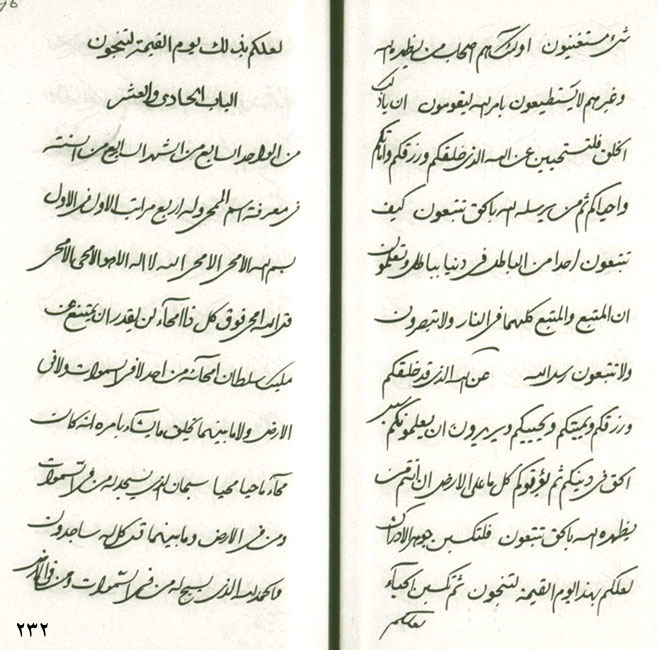 شیء مستغنیون اولئک هم اصحاب من یظهره الله
وغیرهم لا یستطیعون بامر الله لیقومون ان یا ذلک
الخلق فلتستحیین عن الله الذی خلقکم ورزقکم واماتکم
واحیاکم ثم من یرسله الله بالحق تتبعون کیف
تتبعون احدا من الباطل فی دنیا بباطل وتعلمون
ان المتبع والمتبع کلیهما فی النار ولا تبصرون
ولا تتبعون رسل الله عن الله الذی قد خلقکم
ورزقکم ویمیتکم ویحییکم ویریدون ان یعلمونکم سبیل
الحق فی دینکم ثم کل ما علی الارض ان انتم من
یظهره الله بالحق تتبعون فلتکسبن جوهر الادراک
لعلکم بهذا یوم القیمة لتنجون ثم تکسبن الحیاء
لعلکم
لعلکم بذلک یوم القیمة لتنجون
الباب الحادی والعشر
من الواحد السابع من الشهر السابع من السنة
فی معرفة اسم الممحی وله اربع مراتب الاول فی الاول
بسم الله الامحی الامحی الله لا اله الا هو الامحی الامحی
قل الله امحی فوق کل ذا امحاء لن یقدر ان یمتنع عن
ملیک سلطان امحائه من احد لا فی السموات ولا فی
الارض ولا ما بینهما یخلق ما یشاء بامره انه کان
محاء ماحیا محیا سبحان الذی یسجد له من فی السموات
ومن فی الارض وما بینهما قل کل له ساجدون
والحمد لله الذی یسبح له من فی السموات ومن فی الارض
٢٣٢